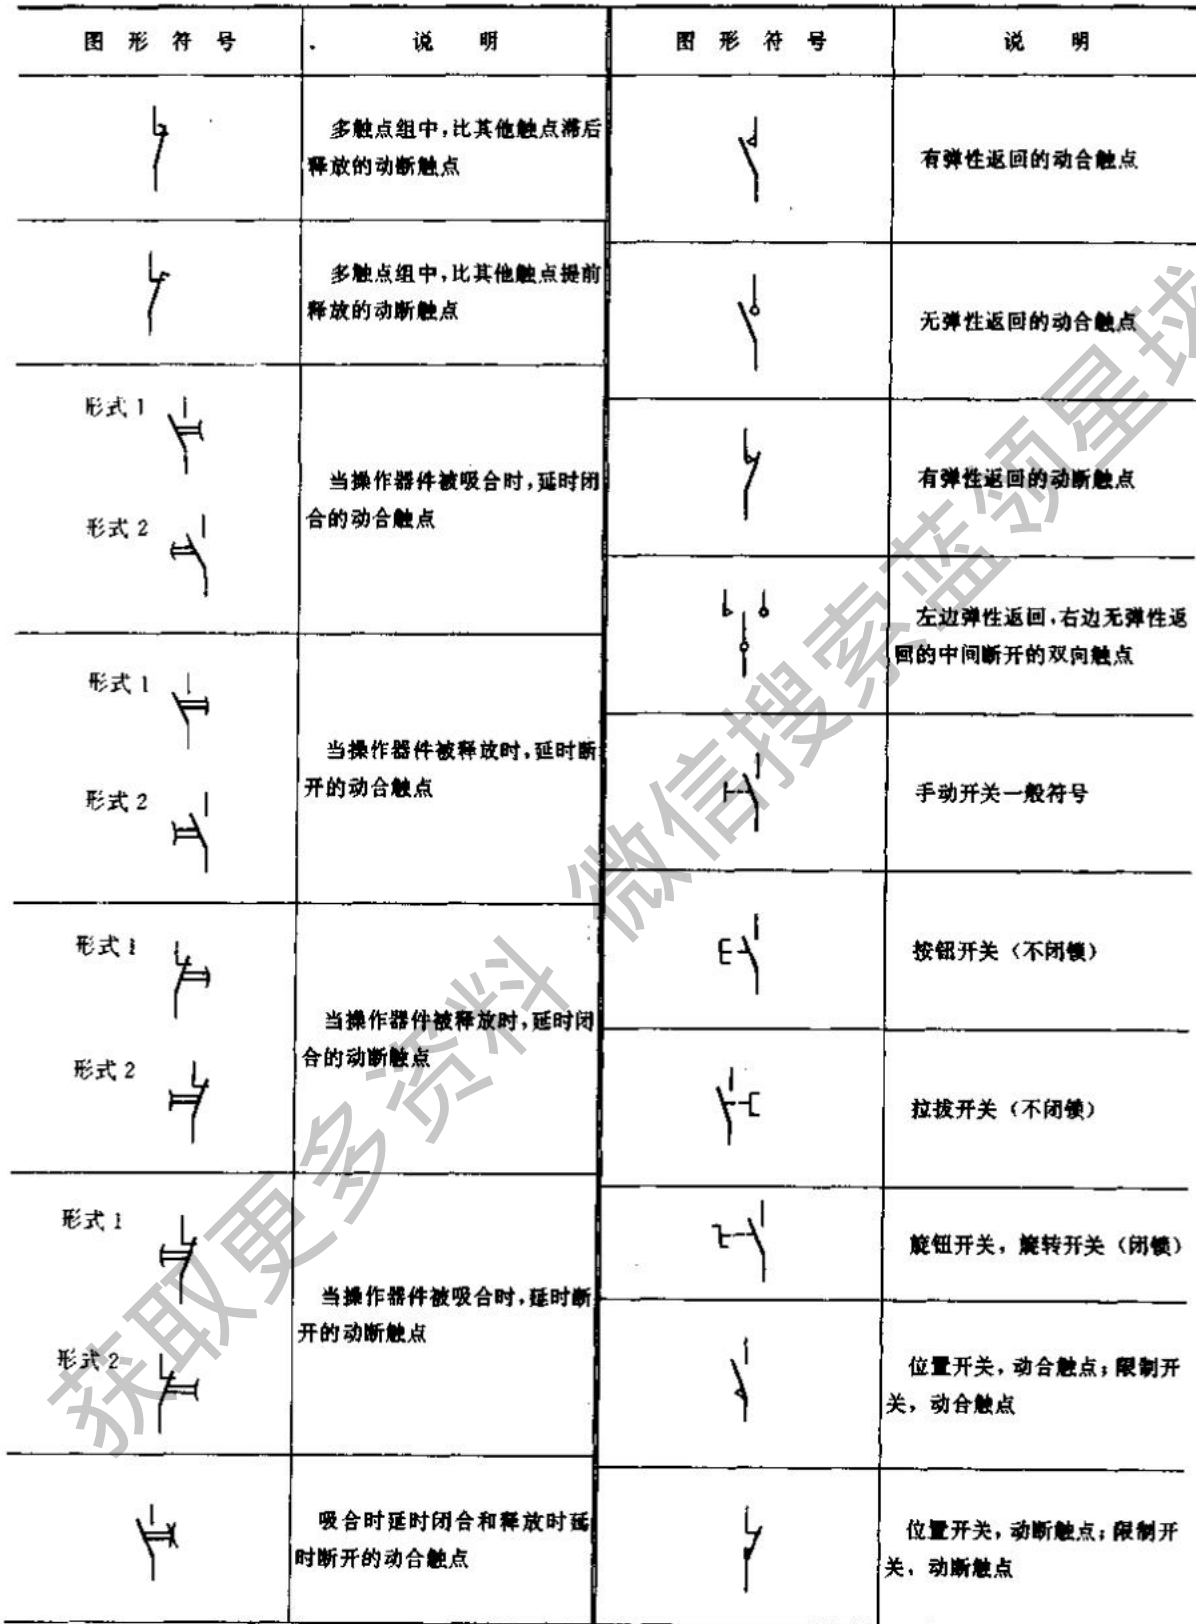 图 形 符 号
说 明
图 形 符 号
说 明
多触点组中,比其他触点滞后
释放的动断触点
多触点组中,比其他触点提前
释放的动断触点
形式 1
形式 2
当操作器件被吸合时,延时闭
合的动合触点
形式 1
形式 2
当操作器件被释放时,延时断
开的动合触点
形式 1
形式 2
当操作器件被释放时,延时闭
合的动断触点
形式 1
形式 2
当操作器件被吸合时,延时断
开的动断触点
吸合时延时闭合和释放时延
时断开的动合触点
有弹性返回的动合触点
无弹性返回的动合触点
有弹性返回的动断触点
左边弹性返回,右边无弹性返
回的中间断开的双向触点
手动开关一般符号
按钮开关（不闭锁）
拉拔开关（不闭锁）
旋钮开关，旋转开关（闭锁）
位置开关，动合触点；限制开
关，动合触点
位置开关，动断触点；限制开
关，动断触点
获取更多资料 微信搜索蓝领星球